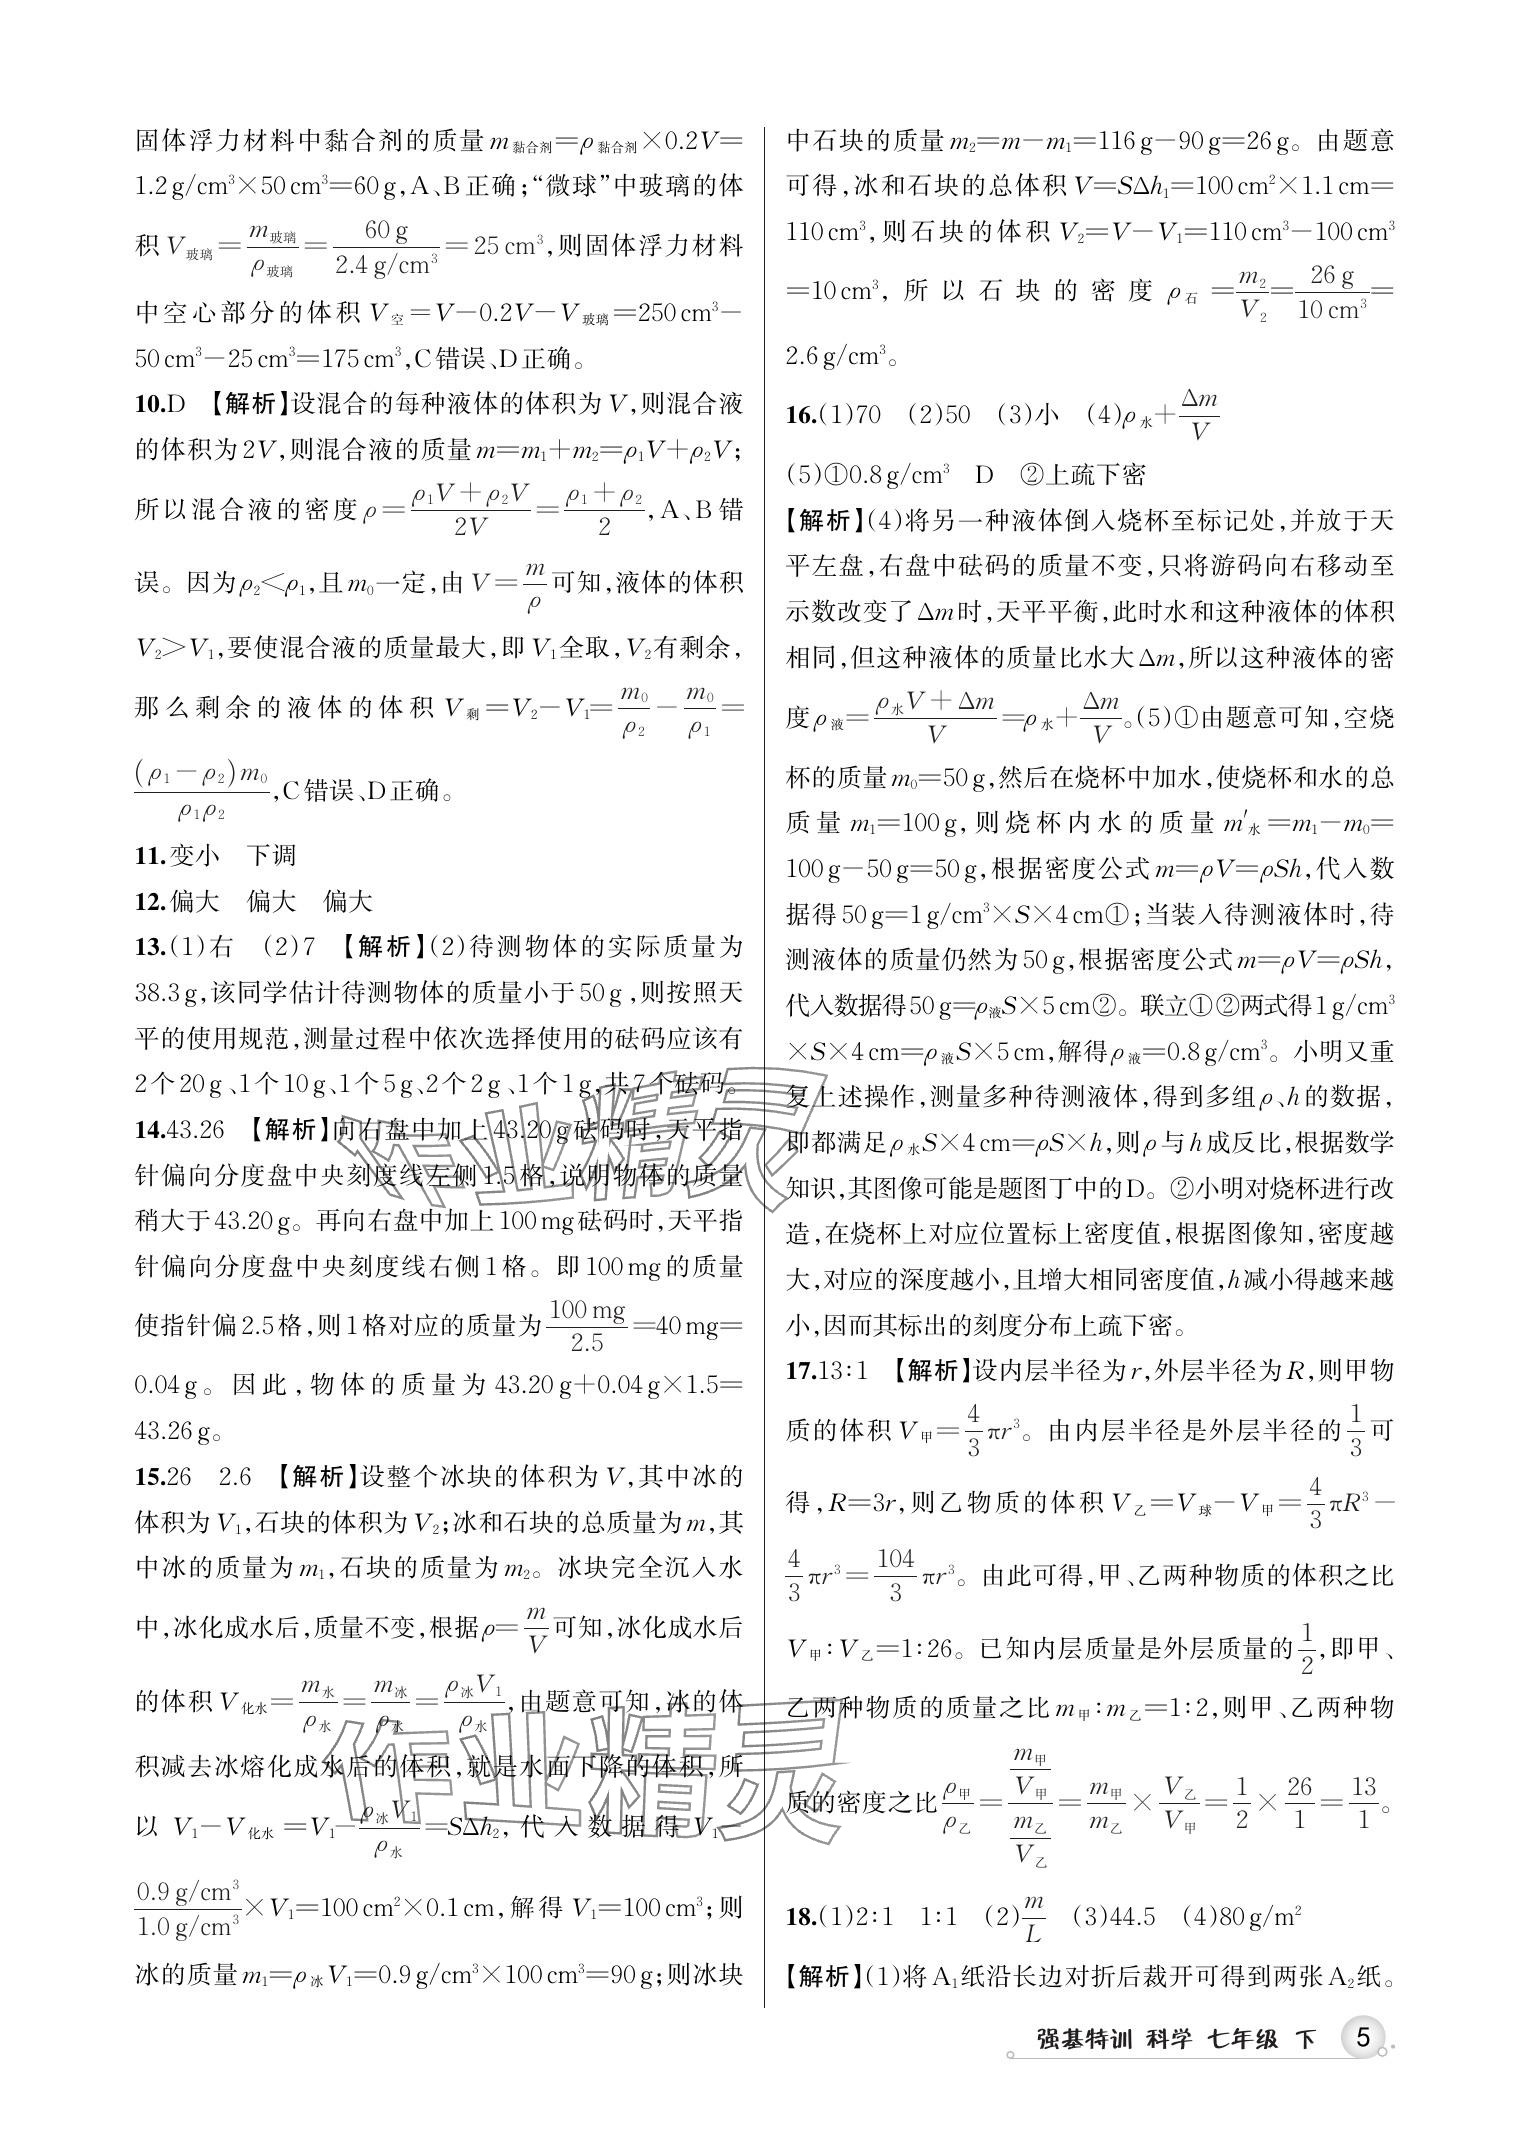 固体浮力材料中黏合剂的质量 m黏合剂=ρ黏合剂×0.2V=
1.2 g/cm³×50 cm³=60 g,A、B正确;“微球”中玻璃的体
积 V玻璃=m玻璃/ρ玻璃=60 g/2.4 g/cm³=25 cm³,则固体浮力材料
中空心部分的体积 V空=V-0.2V-V玻璃=250 cm³-
50 cm³-25 cm³=175 cm³,C错误、D正确。
10.D 【解析】设混合的每种液体的体积为V,则混合液
的体积为2V,则混合液的质量m=m₁+m₂=ρ₁V+ρ₂V;
所以混合液的密度ρ=(ρ₁V+ρ₂V)/2V=(ρ₁+ρ₂)/2,A、B错
误。因为ρ₂<ρ₁,且m₀一定,由V=m/ρ可知,液体的体积
V₂>V₁,要使混合液的质量最大,即V₁全取,V₂有剩余,
那么剩余的液体的体积 V剩=V₂-V₁=m₀/ρ₂-m₀/ρ₁=
(ρ₁-ρ₂)m₀/ρ₁ρ₂,C错误、D正确。
11.变小 下调
12.偏大 偏大 偏大
13.(1)右 (2)7 【解析】(2)待测物体的实际质量为
38.3 g,该同学估计待测物体的质量小于50 g,则按照天
平的使用规范,测量过程中依次选择使用的砝码应该有
2个20 g、1个10 g、1个5 g、2个2 g、1个1 g,共7个砝码。
14.43.26 【解析】向右盘中加上43.20 g砝码时,天平指
针偏向分度盘中央刻度线左侧1.5格,说明物体的质量
稍大于43.20 g。再向右盘中加上100 mg砝码时,天平指
针偏向分度盘中央刻度线右侧1格。即100 mg的质量
使指针偏2.5格,则1格对应的质量为100 mg/2.5=40 mg=
0.04 g。因此,物体的质量为43.20 g+0.04 g×1.5=
43.26 g。
15.26 2.6 【解析】设整个冰块的体积为V,其中冰的
体积为V₁,石块的体积为V₂;冰和石块的总质量为m,其
中冰的质量为m₁,石块的质量为m₂。冰块完全沉入水
中,冰化成水后,质量不变,根据ρ=m/V可知,冰化成水后
的体积V化水=m水/ρ水=m冰/ρ水=ρ冰V₁/ρ水,由题意可知,冰的体
积减去冰熔化成水后的体积,就是水面下降的体积,所
以 V₁-V化水=V₁-ρ冰V₁/ρ水=SΔh₂,代入数据得 V₁-
0.9 g/cm³/1.0 g/cm³×V₁=100 cm²×0.1 cm,解得V₁=100 cm³;则
冰的质量m₁=ρ冰V₁=0.9 g/cm³×100 cm³=90 g;则冰块
中石块的质量m₂=m-m₁=116 g-90 g=26 g。由题意
可得,冰和石块的总体积V=SΔh₁=100 cm²×1.1 cm=
110 cm³,则石块的体积V₂=V-V₁=110 cm³-100 cm³
=10 cm³,所以石块的密度ρ石=m₂/V₂=26 g/10 cm³=
2.6 g/cm³。
16.(1)70 (2)50 (3)小 (4)ρ水+Δm/V
(5)①0.8 g/cm³ D ②上疏下密
【解析】(4)将另一种液体倒入烧杯至标记处,并放于天
平左盘,右盘中砝码的质量不变,只将游码向右移动至
示数改变了Δm时,天平平衡,此时水和这种液体的体积
相同,但这种液体的质量比水大Δm,所以这种液体的密
度ρ液=(ρ水V+Δm)/V=ρ水+Δm/V。(5)①由题意可知,空烧
杯的质量m₀=50 g,然后在烧杯中加水,使烧杯和水的总
质量m₁=100 g,则烧杯内水的质量m′水=m₁-m₀=
100 g-50 g=50 g,根据密度公式m=ρV=ρSh,代入数
据得50 g=1 g/cm³×S×4 cm①;当装入待测液体时,待
测液体的质量仍然为50 g,根据密度公式m=ρV=ρSh,
代入数据得50 g=ρ液S×5 cm②。联立①②两式得1 g/cm³
×S×4 cm=ρ液S×5 cm,解得ρ液=0.8 g/cm³。小明又重
复上述操作,测量多种待测液体,得到多组ρ、h的数据,
即都满足ρ水S×4 cm=ρS×h,则ρ与h成反比,根据数学
知识,其图像可能是题图丁中的D。②小明对烧杯进行改
造,在烧杯上对应位置标上密度值,根据图像知,密度越
大,对应的深度越小,且增大相同密度值,h减小得越来越
小,因而其标出的刻度分布上疏下密。
17.13∶1 【解析】设内层半径为r,外层半径为R,则甲物
质的体积V甲=4/3πr³。由内层半径是外层半径的1/3可
得,R=3r,则乙物质的体积V乙=V球-V甲=4/3πR³-
4/3πr³=104/3πr³。由此可得,甲、乙两种物质的体积之比
V甲∶V乙=1∶26。已知内层质量是外层质量的1/2,即甲、
乙两种物质的质量之比m甲∶m乙=1∶2,则甲、乙两种物
质的密度之比ρ甲/ρ乙=(m甲/V甲)/(m乙/V乙)=m甲/m乙×V乙/V甲=1/2×26/1=13/1。
18.(1)2∶1 1∶1 (2)m/L (3)44.5 (4)80 g/m²
【解析】(1)将A₁纸沿长边对折后裁开可得到两张A₂纸。
强基特训 科学 七年级 下 5
作业精灵
作业精灵